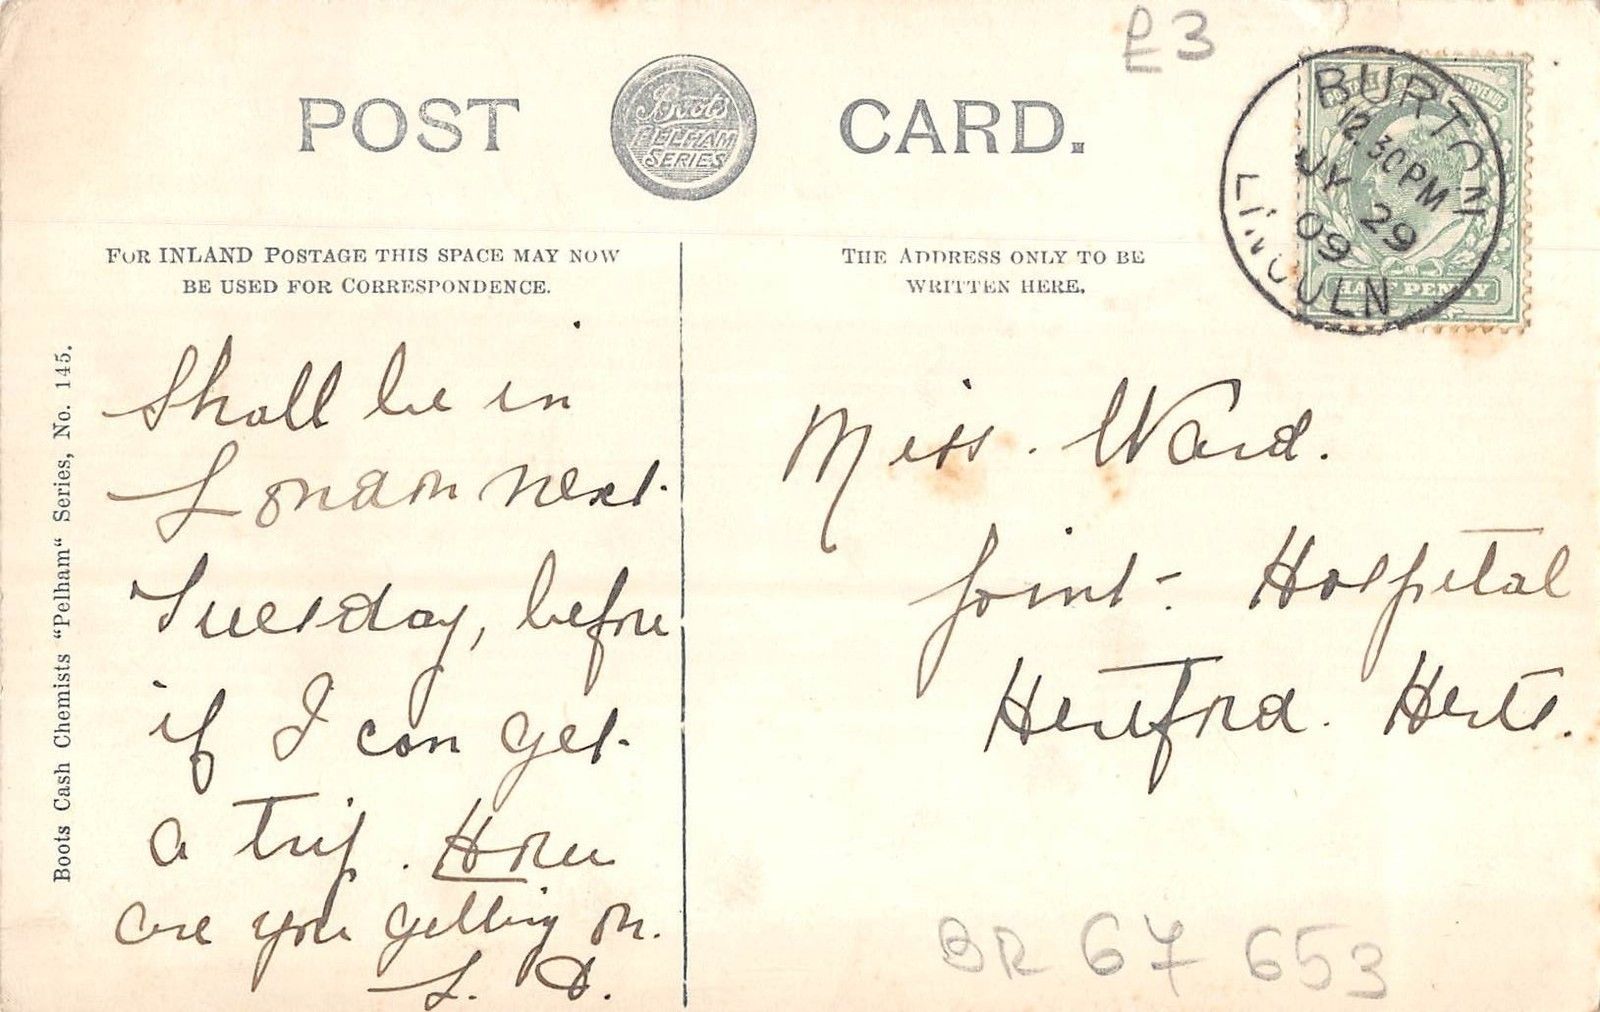 £3
POST CARD.
Boots
PELHAM
SERIES
BURTON
12.30PM
JY 29
09
LINCOLN
HALF PENNY
FOR INLAND POSTAGE THIS SPACE MAY NOW
BE USED FOR CORRESPONDENCE.
THE ADDRESS ONLY TO BE
WRITTEN HERE.
Boots Cash Chemists "Pelham" Series, No. 145.
Shall be in
London next
Tuesday, before
if I can get
a trip. How
are you getting on.
L. D.
Miss. Ward.
Joint- Hospital
Hertford. Herts.
BR 67 653